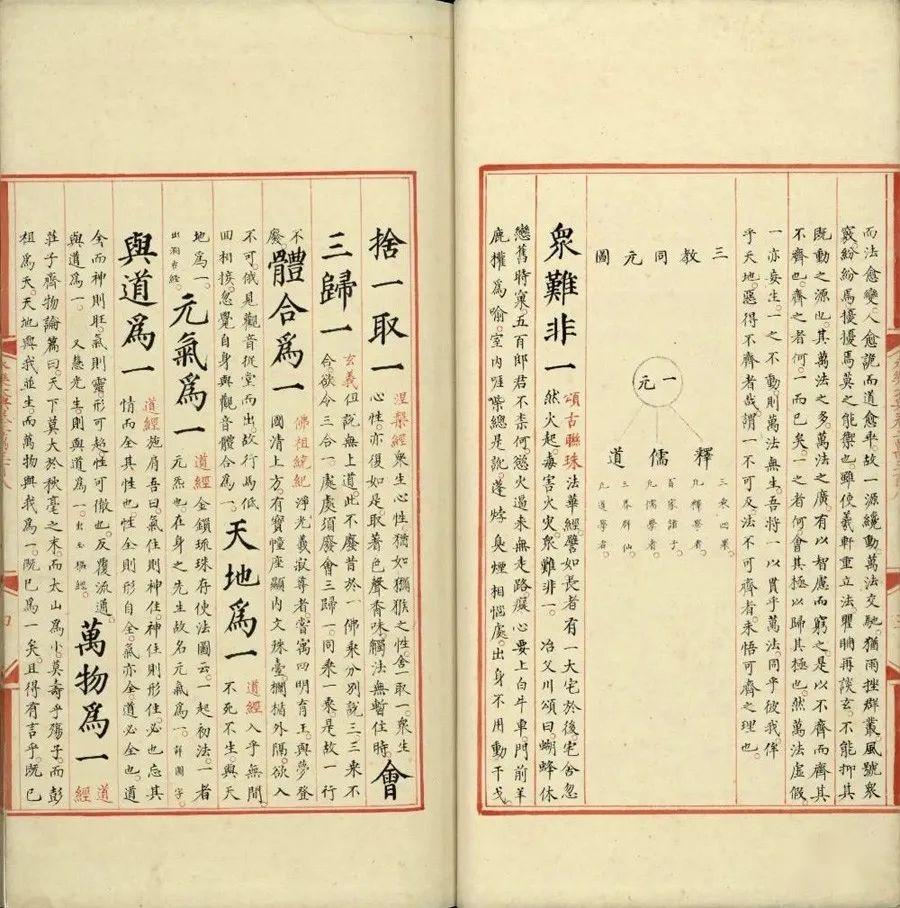 而法愈變人愈詭而道愈乖故一源纔動萬法交馳猶雨挫群叢風號衆
竅紛紛焉擾擾焉莫之能禦也雖使羲軒重立法瞿聃再談玄不能抑其
既動之源也其萬法之多萬法之廣有以智慮而窮之是以不齊而齊其
不齊也齊之者何一而已矣一之者何會其極以歸其極也然萬法虛假
一亦妄生一之不動則萬法無生吾將一以貫乎萬法同乎彼我侔
乎天地惡得不齊者哉謂一不可及法不可齊者未悟可齊之理也
三教同元圖
一元
釋儒道
三乘四果
九釋教者
百家諸子
凡儒學者
三界群仙
凡道學者
衆難非一
頌古聯珠法華經譬如長者有一大宅於後宅舍忽
然火起毒害火災衆難非一 冶父川頌曰蝴蜂休
戀舊時窠五百郎君不柰何慾火逼來無走路癡心要上白牛車門前羊
鹿權爲喻室內啀喍總是訛臭煙相惱處出身不用動干戈
捨一取一
涅槃經衆生心性猶如獼猴之性舍一取一衆生
心性亦復如是取著色聲香味觸法無暫住時
會
三歸一
玄義但說無上道此不廢昔於一佛乘分別說三三來不
合欲今三合一處處須廢會三歸一同乘一乘是故一行
不
廢
體合爲一
佛祖統紀淨光義寂尊者嘗寓四明育王與夢登
國清上方有寶幢座顯內文殊臺欄楯外隔欲入
不可俄見觀音從堂而出故行馬低
回相接忽覺自身與觀音體合爲一
天地爲一
道經入乎無間
不死不生與天
地爲一
出洞古經
元氣爲一
道經金鎖琉珠存使法圖云一起初法一者
元炁也在身之先生故名元氣爲一 詳圖字
與道爲一
道經施肩吾曰氣住則神住神住則形住必也忘其
情而全其性也性全則形自全氣亦全道必全也道
全而神則旺氣則靈形可超性可徹也反覆流通
與道爲一 又慧光生則與道爲一
萬物爲一
道
經
莊子齊物論篇曰天下莫大於秋毫之末而太山爲小莫壽乎殤子而彭
祖爲夭天地與我並生而萬物與我爲一既已爲一矣且得有言乎既已